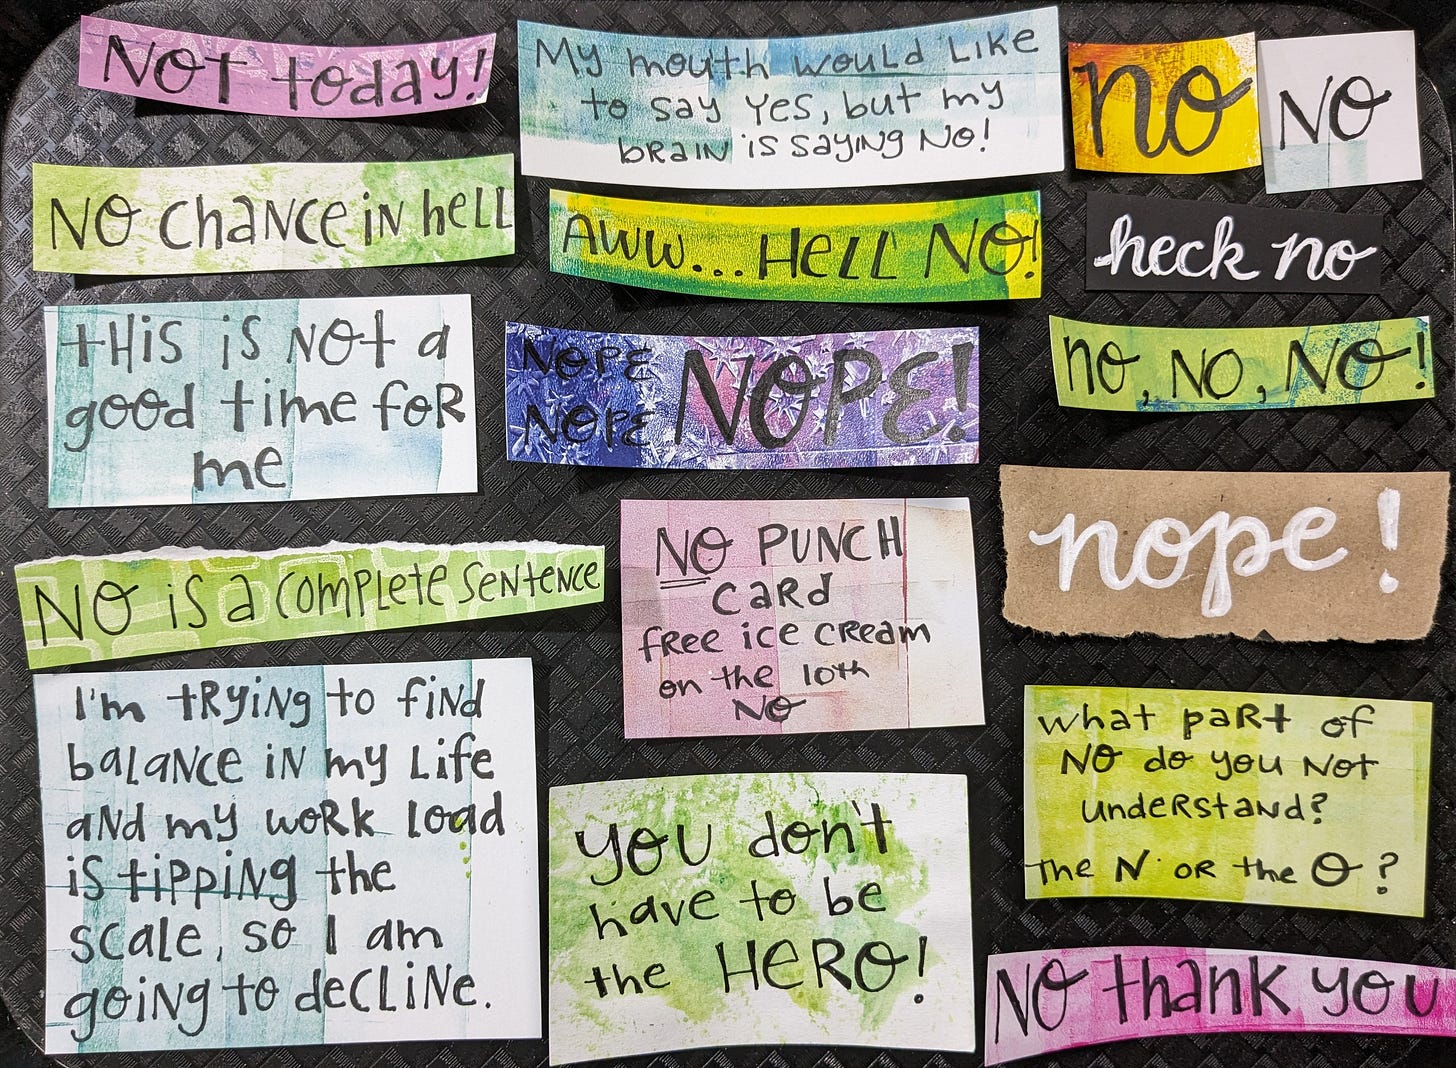 NOT today!
My mouth would like
to say yes, but my
brain is saying No!
no
NO
NO chance in hell
AWW...HELL NO!
heck no
tHis is NOt a
good time foR
me
NOPE
NOPE
NOPE!
no, NO, NO!
NO is a complete sentence
NO PUNCH
CaRd
free ice cream
on the 10th
NO
nope!
I'm tRying to find
balance in my Life
and my woRk load
is tipping the
scale, so I am
going to decline.
you don't
have to be
the HERO!
what paRt of
NO do you Not
understand?
the N or the O?
NO thank you